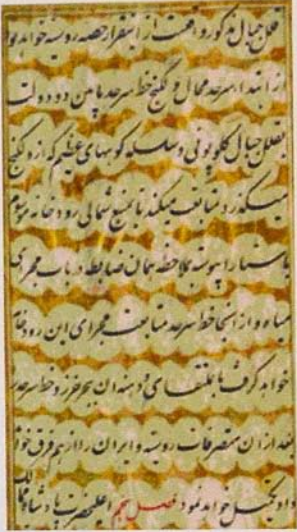 قلل جبال مذکور واقعست از اینقرار حصه روسیه خواهد بود
از ابتداء سرحد محال ولکیج خط سرحد مابین دو دولت
بقلل جبال کلوپوتی و سلسله کوههای عظیم که از ولکیج
میکذرد متابعت میکند تا بمنبع شمالی رودخانه موسوم
باستارا پیوسته بملاحظه همان ضابطه در باب مجرای
میاه و از انجا خط سرحد متابعت مجرای این رودخانه
خواهد کرد تا بملتقای دهنه ان ببحر خزر و خط سرحد
بعد از ان متصرفات روسیه و ایران را از هم فرق خواهد
داد تکمیل خواهد نمود فصل پنجم اعلیحضرت پادشاه ممالک